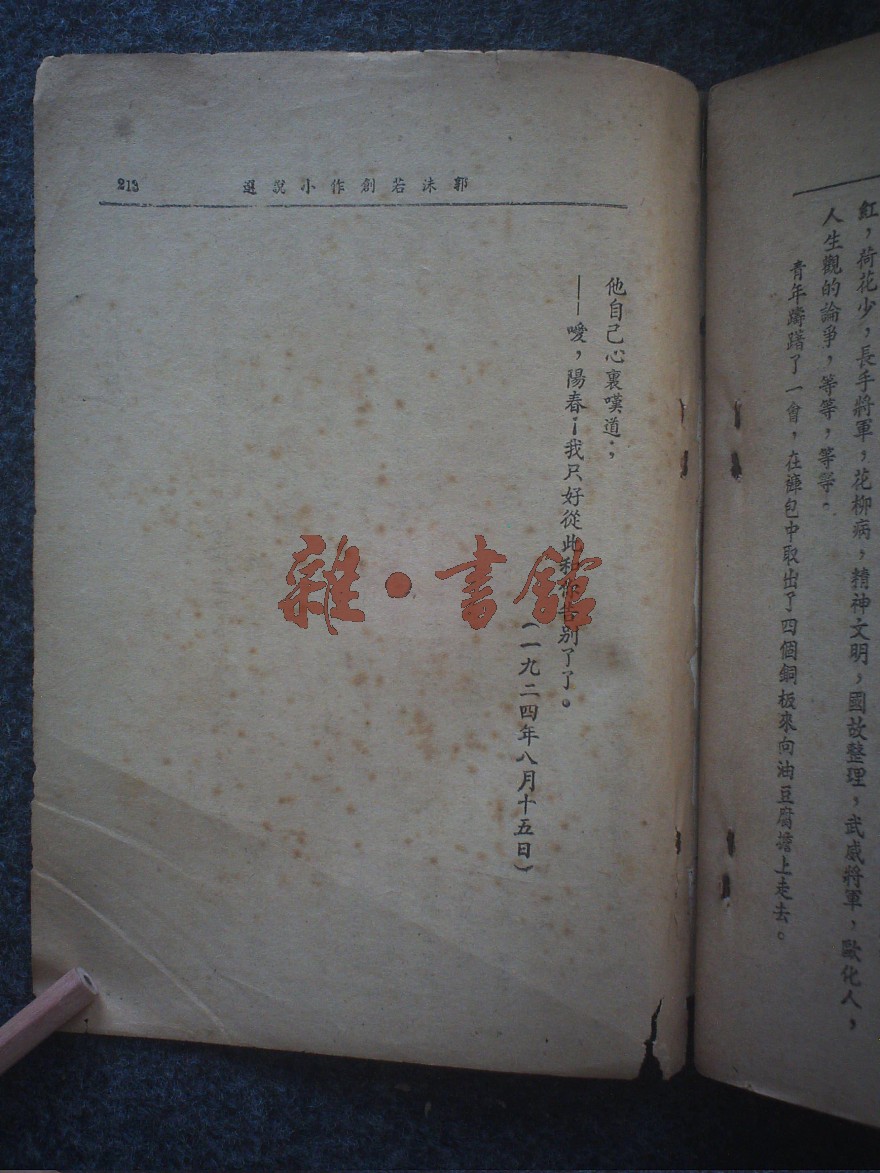 紅，荷花少，長手將軍，花柳病，精神文明，國故整理，武威將軍，歐化人，
人生觀的論爭，等等，等等。
青年躊躇了一會，在褲包中取出了四個銅板來向油豆腐擔上走去。
郭沫若創作小說選
213
他自己心裏嘆道：
——噯，陽春！我只好從此和你告別了了。
（一九二四年八月十五日）
雜·書館